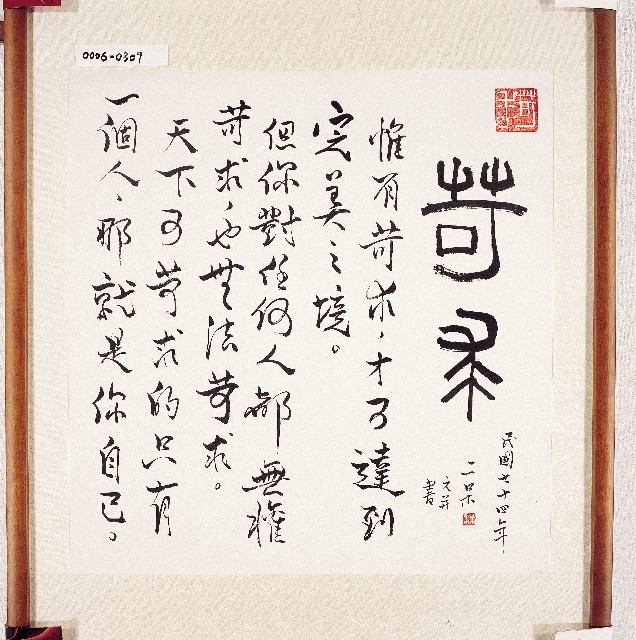 0006-0309
苛求
民國七十四年
二呆
文并
書
惟有苛求，才可達到
完美之境。
但你對任何人都無權
苛求，也無法苛求。
天下可苛求的只有
一個人，那就是你自己。